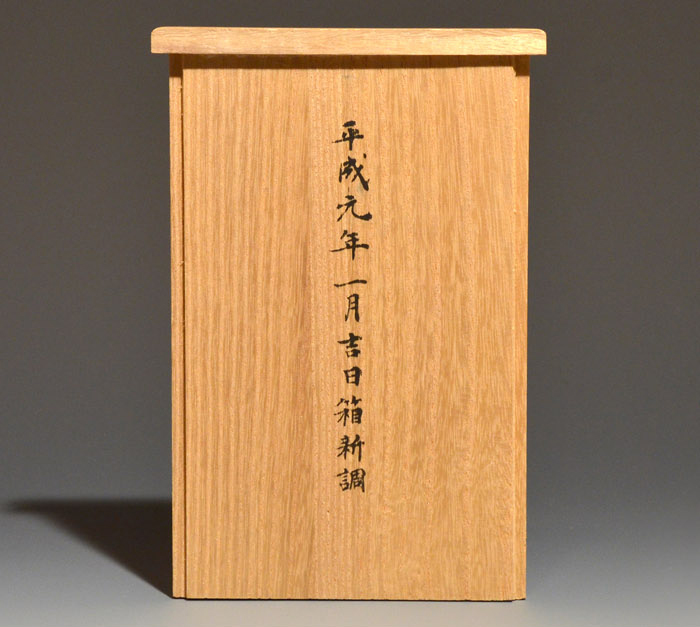 平成元年一月吉日箱新調